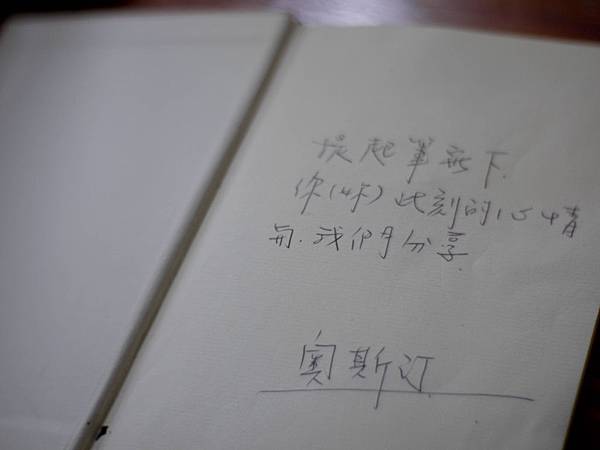 提起筆寫下
你(妳)此刻的心情
与我們分享
奧斯汀